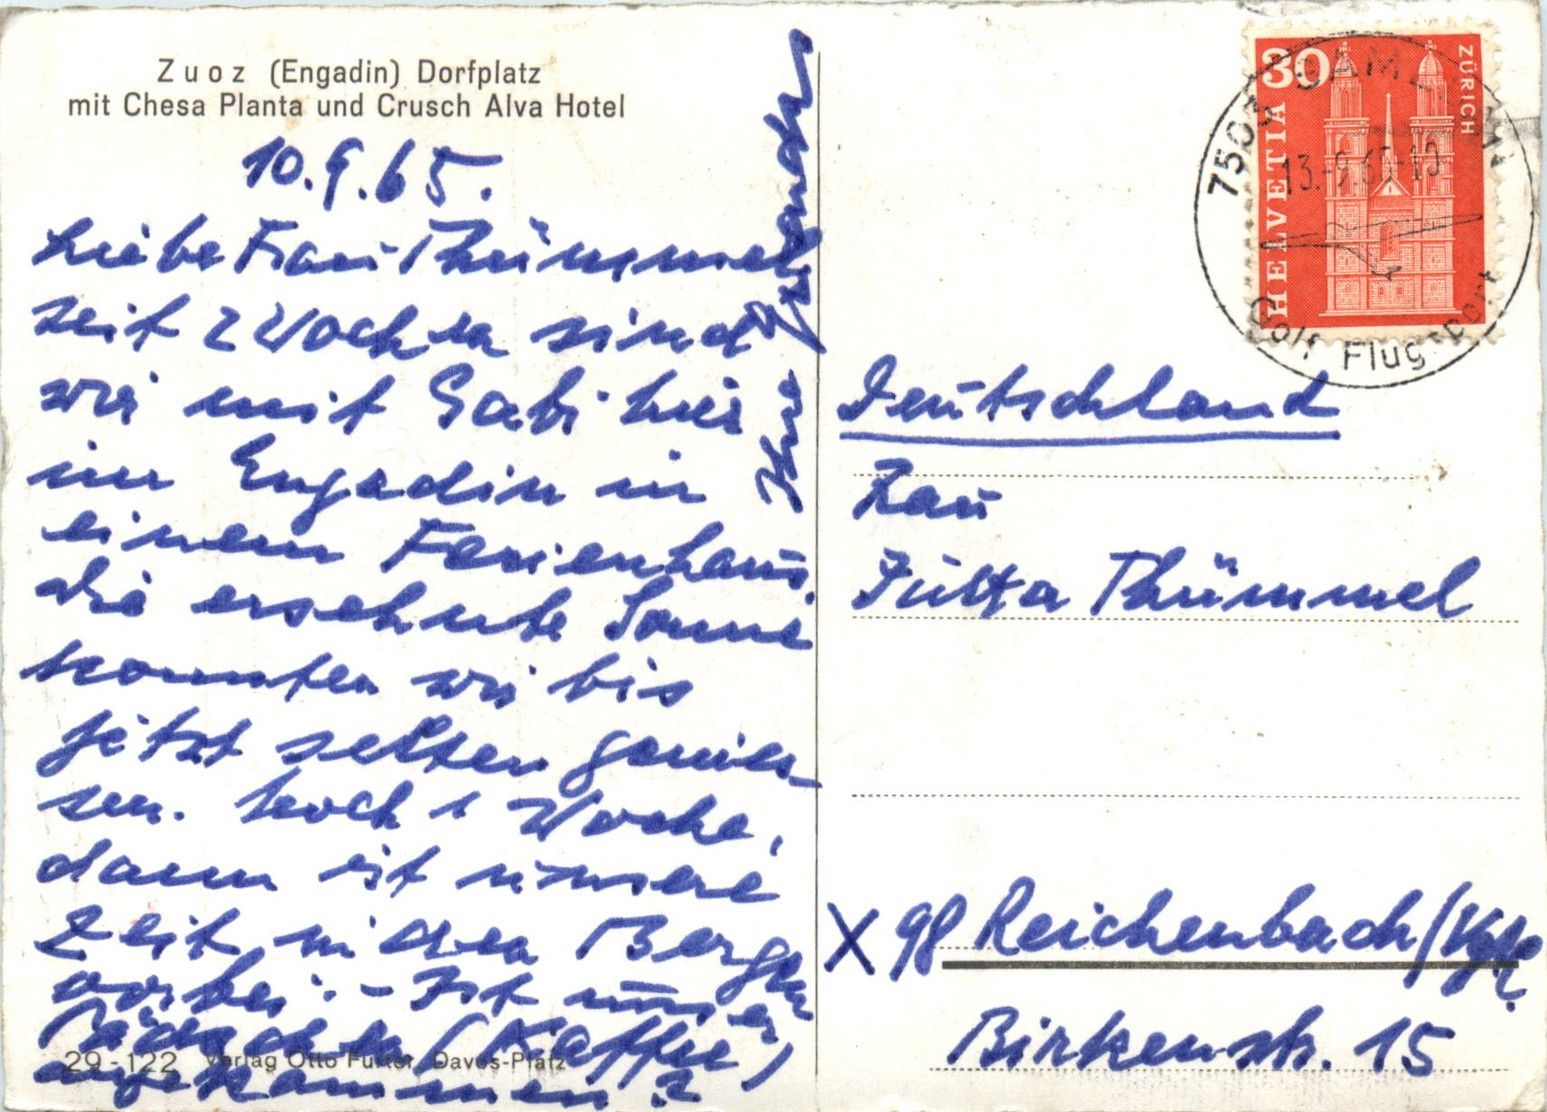 Zuoz (Engadin) Dorfplatz
mit Chesa Planta und Crusch Alva Hotel
10.9.65.
Liebe Frau Thümmel,
seit 2 Wochen sind
wir mit Gabi hier
im Engadin in
einem Ferienhaus.
Die ersehnte Sonne
konnten wir bis
jetzt selten genies-
sen. Noch 1 Woche,
dann ist unsere
Zeit in den Bergen
vorbei. - Ist unser
Päckchen (Kaffee)
angekommen?
Ihre
29-122 Verlag Otto Furter, Davos-Platz
30
HELVETIA
ZÜRICH
7503 SAMEDAN
13.-9.65-10
Golf Flugsport
Deutschland
Frau
Jutta Thümmel
X 98 Reichenbach/Vgtl.
Birkenstr. 15